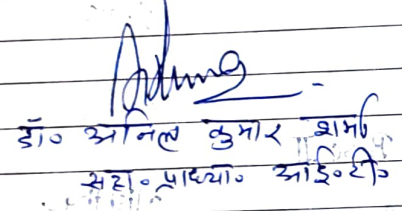 डॉ० अनिल कुमार शर्मा
सहा० प्राध्या० आई०टी०